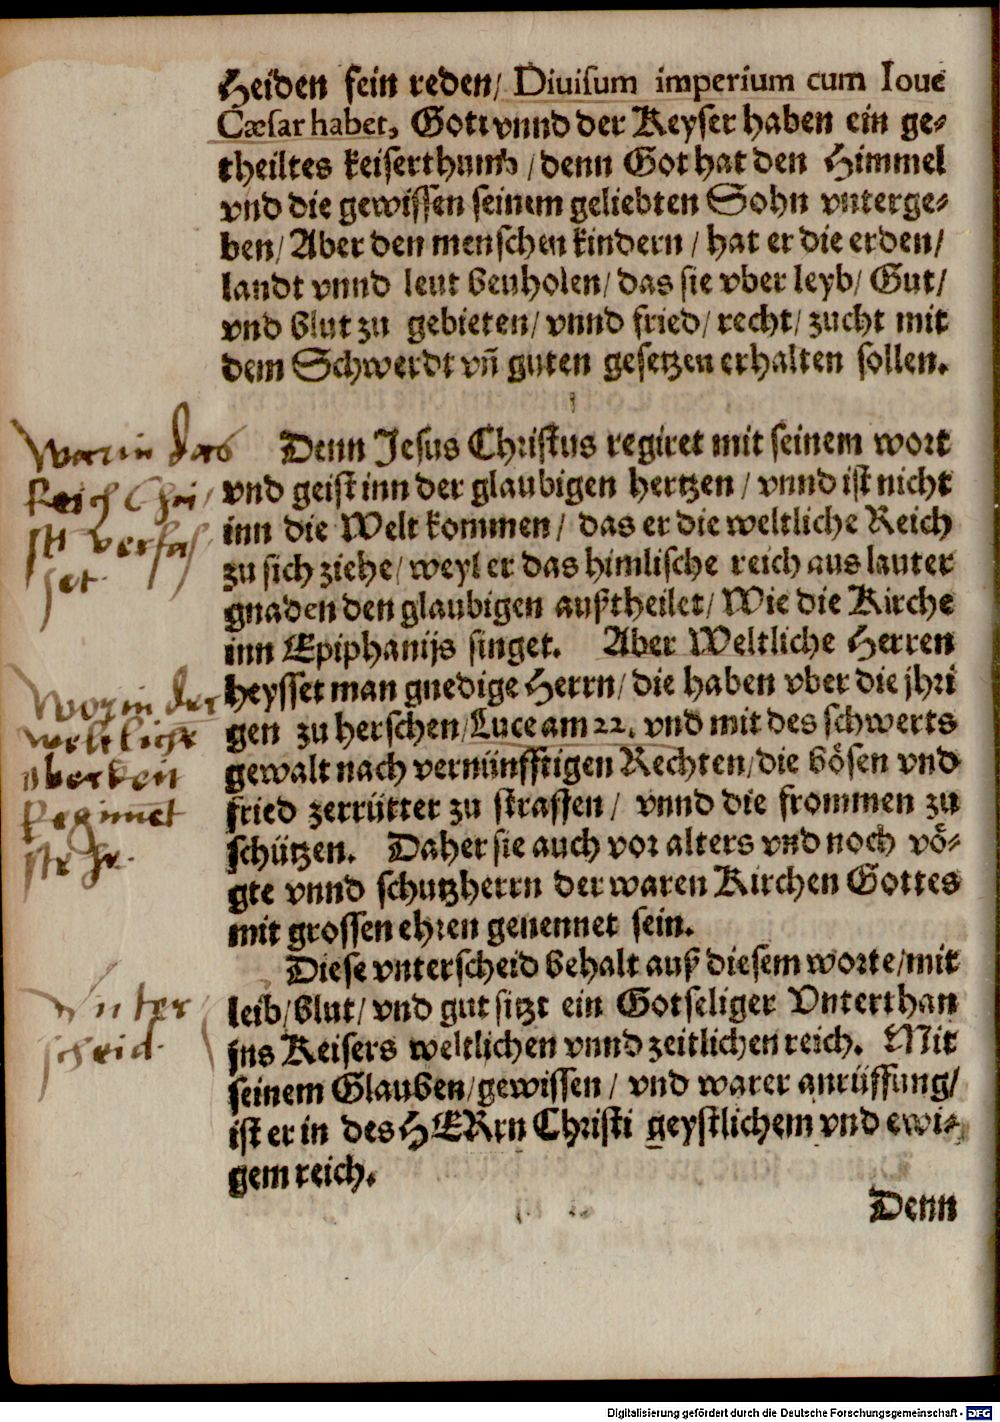 Heiden sein reden/ Diuisum imperium cum Ioue
Cæsar habet, Gott vnnd der Keyser haben ein ge-
theiltes keiserthumb / denn Got hat den Himmel
vnd die gewissen seinem geliebten Sohn vnterge-
ben/ Aber den menschen kindern / hat er die erden/
landt vnnd leut beuholen/ das sie vber leyb/ Gut/
vnd blut zu gebieten/ vnnd fried/ recht/ zucht mit
dem Schwerdt vñ guten gesetzen erhalten sollen.
Denn Jesus Christus regiret mit seinem wort
vnd geist inn der glaubigen hertzen / vnnd ist nicht
inn die Welt kommen/ das er die weltliche Reich
zu sich ziehe/ weyl er das himlische reich aus lauter
gnaden den glaubigen außtheilet/ Wie die Kirche
inn Epiphanijs singet. Aber Weltliche Herren
heysset man gnedige Herrn/ die haben vber die jhri
gen zu herschen/ Luce am 22. vnd mit des schwerts
gewalt nach vernünfftigen Rechten/ die bösen vnd
fried zerrütter zu straffen/ vnnd die frommen zu
schützen. Daher sie auch vor alters vnd noch vö-
gte vnnd schutzherrn der waren Kirchen Gottes
mit grossen ehren genennet sein.
Diese vnterscheid behalt auß diesem worte/ mit
leib/ blut/ vnd gut sitzt ein Gotseliger Vnterthan
jns Keisers weltlichen vnnd zeitlichen reich. Mit
seinem Glauben/ gewissen / vnd warer anrüffung/
ist er in des HERrn Christi geystlichem vnd ewi-
gem reich.
Denn
Worin das
Reich Chri
sti verfas
set.
Worin der
weltliche
oberkeit
Regimēt
stehe.
Vnter
scheid.
Digitalisierung gefördert durch die Deutsche Forschungsgemeinschaft - DFG